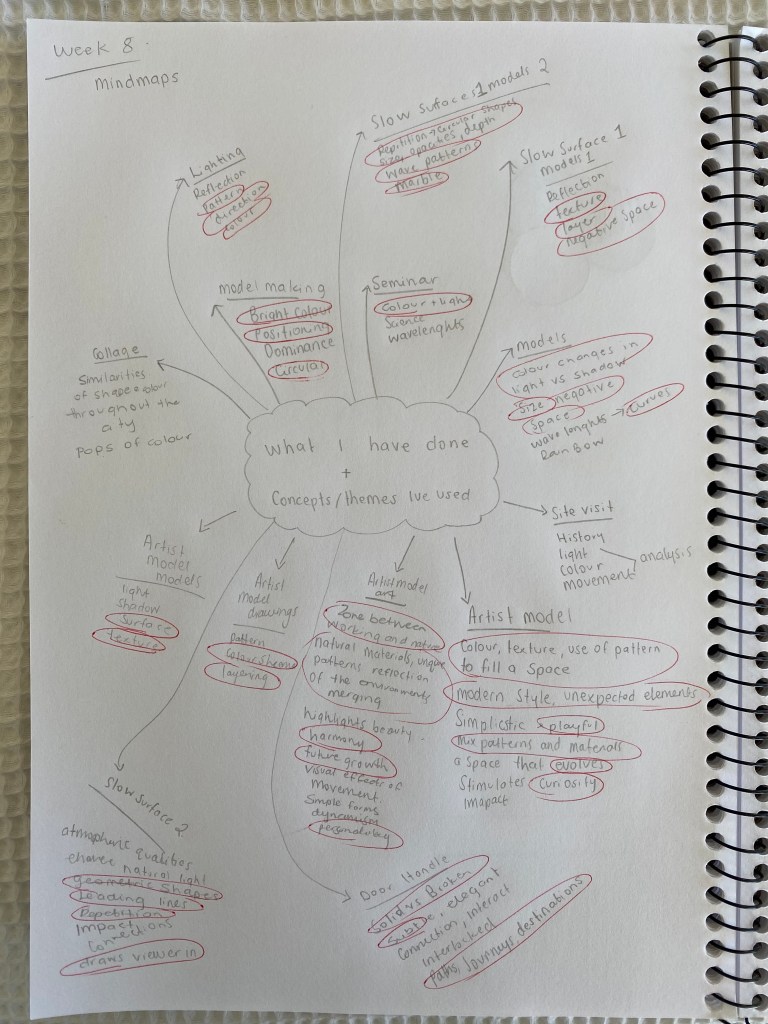 Week 8
Mindmaps
What I have done
+
Concepts/themes Ive used
Lighting
Reflection
pattern
direction
colour
Slow Surfaces 1 models 2
Repitition → Circular Shapes
Sizes, opacities, depth
wave patterns
marble
Slow Surface 1
models 1
Reflection
texture
layer
negative space
model making
Bright Colour
Positioning
Dominance
Circular
Seminar
Colour + light
Science
wavelenghts
models
colour changes in
light vs shadow
Size negative
Space
wave lenghts → curves
Rainbow
Collage
Similarities
of shape + colour
throughout the
city
pops of colour
Site visit
History
light
colour
movement
analysis
Artist
model
models
light
shadow
surface
texture
Artist
model
drawings
pattern
colour scheme
layering
Artist model
art
Zone between
working and nature
natural materials, unique
patterns reflection
of the environments
merging
highlights beauty
harmony
future growth
visual effects of
movement
Simple forms
dynamism
Artist model
Colour, texture, use of pattern
to fill a space
modern style, unexpected elements
Simplicstic + playful
Mix patterns and materials
a space that evolves
Stimulates curiosity
imapct
Slow Surface 2
qualities
natural light
geometric shapes
Leading lines
Repetition
Impact
Connections
draws viewer in
Door Handle
Solid vs Broken
Subtle, elegant
Connection, interact
interlocked
Paths, Journeys, destinations